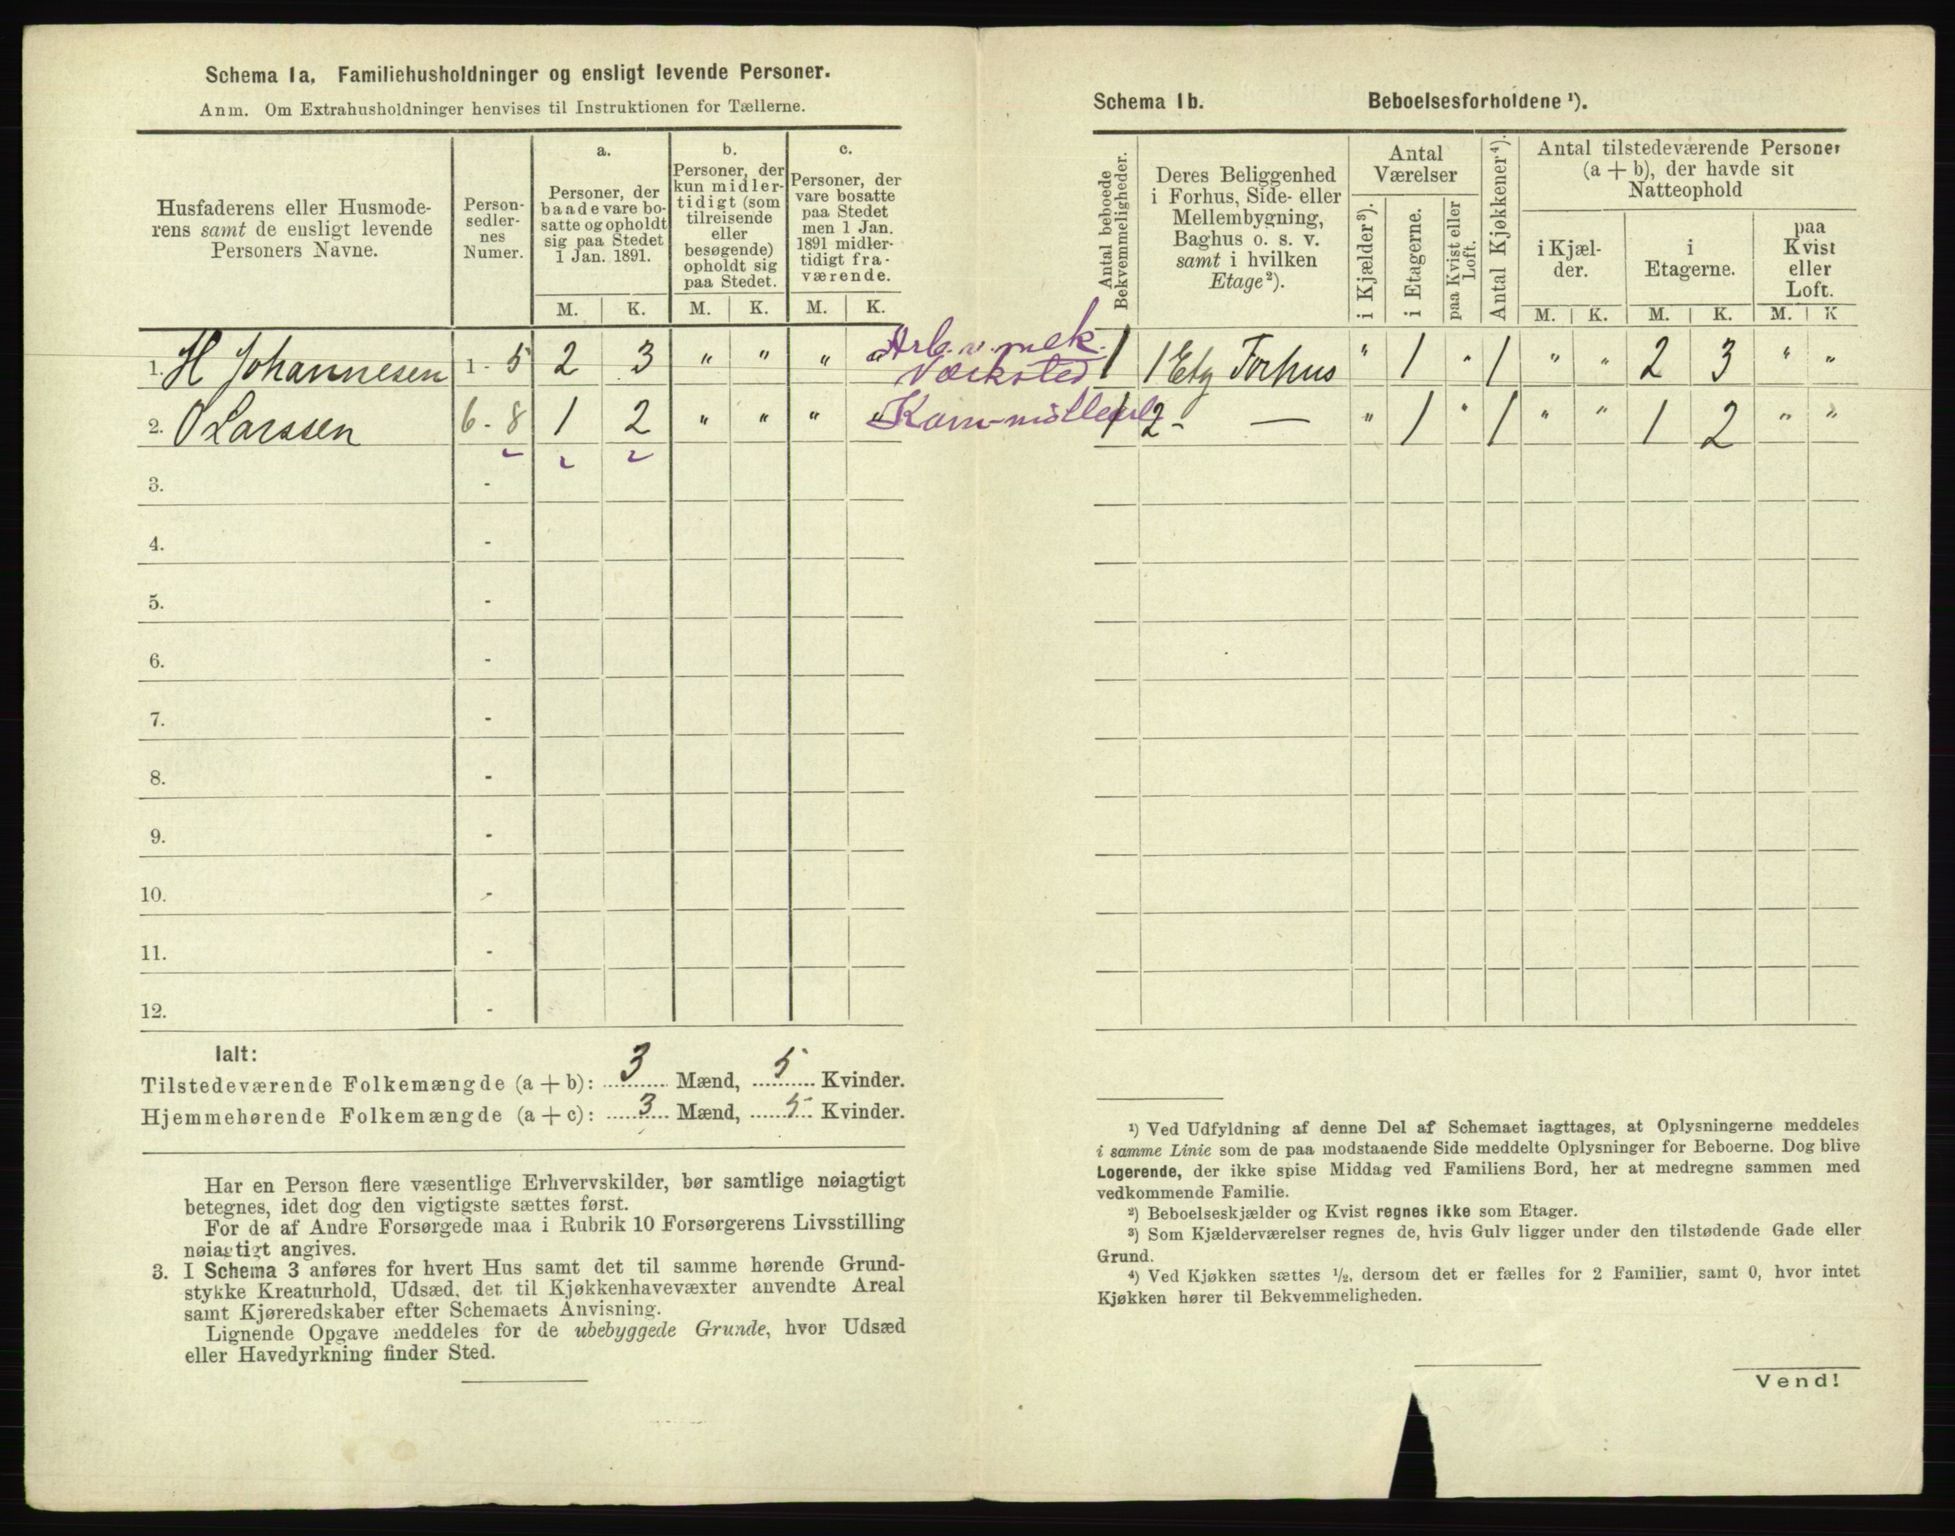 Schema 1a. Familiehusholdninger og ensligt levende Personer.
Anm. Om Extrahusholdninger henvises til Instruktionen for Tællerne.
Husfaderens eller Husmode-
rens samt de ensligt levende
Personers Navne.
Person-
sedler-
nes
Numer.
a.
Personer, der
baade vare bo-
satte og opholdt
sig paa Stedet
1 Jan. 1891.
b.
Personer, der
kun midler-
tidigt (som
tilreisende
eller
besøgende)
opholdt sig
paa Stedet.
c.
Personer, der
vare bosatte
paa Stedet
men 1 Jan.
1891 midler-
tidigt fra-
værende.
M. K. M. K. M. K.
1. H Johannesen 1 - 5 2 3 " " " " Arb. v. mek. Værksted
2. O Larssen 6 - 8 1 2 " " " "
3. -
4. -
5. -
6. -
7. -
8. -
9. -
10. -
11. -
12. -
Ialt:
Tilstedeværende Folkemængde (a + b): 3 Mænd, 5 Kvinder.
Hjemmehørende Folkemængde (a + c): 3 Mænd, 5 Kvinder.
Har en Person flere væsentlige Erhvervskilder, bør samtlige nøiagtigt
betegnes, idet dog den vigtigste sættes først.
For de af Andre Forsørgede maa i Rubrik 10 Forsørgerens Livsstilling
nøiagtigt angives.
3. I Schema 3 anføres for hvert Hus samt det til samme hørende Grund-
stykke Kreaturhold, Udsæd, det til Kjøkkenhavevæxter anvendte Areal
samt Kjøreredskaber efter Schemaets Anvisning.
Lignende Opgave meddeles for de ubebyggede Grunde, hvor Udsæd
eller Havedyrkning finder Sted.
Schema 1b. Beboelsesforholdene ¹).
Antal beboede
Bekvemmeligheder.
Deres Beliggenhed
i Forhus, Side- eller
Mellembygning,
Baghus o. s. v.
samt i hvilken
Etage ²).
Antal
Værelser
i Kjælder ³).
i Etagerne.
paa Kvist eller
Loft.
Antal Kjøkkener ⁴).
Antal tilstedeværende Personer
(a + b), der havde sit
Natteophold
i Kjæl-
der.
i
Etagerne.
paa
Kvist
eller
Loft.
M. K. M. K. M. K
1 1 Etg Forhus " 1 " 1 " " 2 3 " "
1 2 - — " 1 " 1 " " 1 2 " "
¹) Ved Udfyldning af denne Del af Schemaet iagttages, at Oplysningerne meddeles
i samme Linie som de paa modstaaende Side meddelte Oplysninger for Beboerne. Dog blive
Logerende, der ikke spise Middag ved Familiens Bord, her at medregne sammen med
vedkommende Familie.
²) Beboelseskjælder og Kvist regnes ikke som Etager.
³) Som Kjælderværelser regnes de, hvis Gulv ligger under den tilstødende Gade eller
Grund.
⁴) Ved Kjøkken sættes ½, dersom det er fælles for 2 Familier, samt 0, hvor intet
Kjøkken hører til Bekvemmeligheden.
Vend!